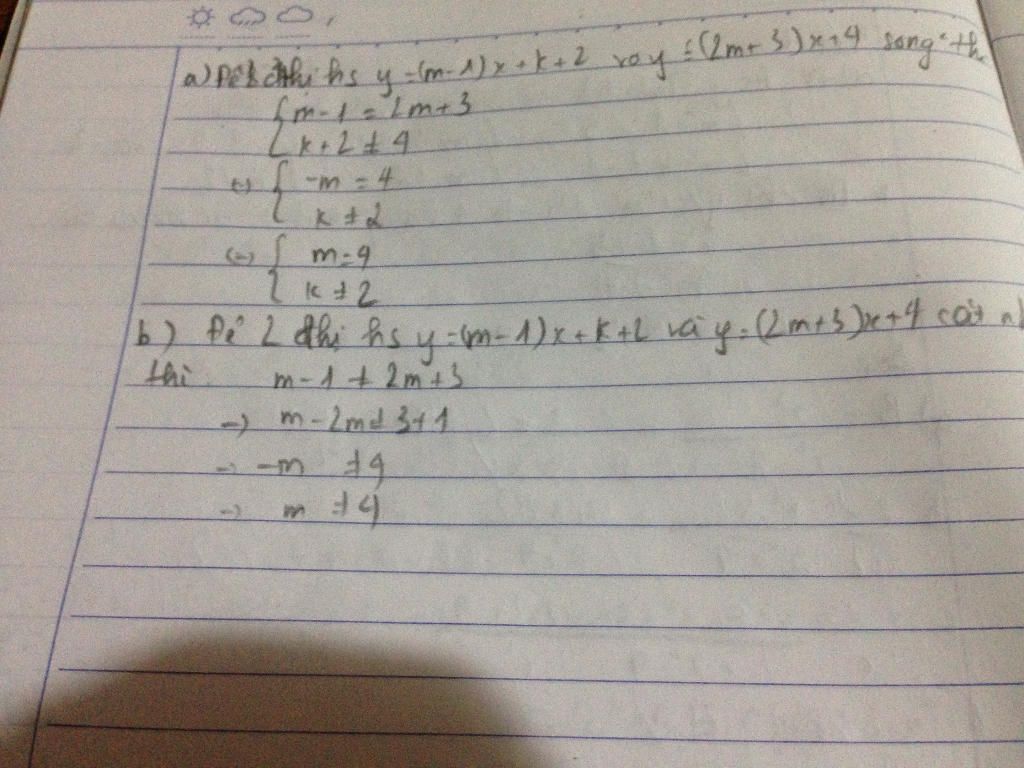 a) Để 2 đthị hs y = (m-1)x + k + 2 và y = (2m+3)x+4 song²
{ m - 1 = 2m+3
k + 2 ≠ 4
(-) { -m = 4
k ≠ 2
(-) { m = 4
k ≠ 2
b) Để 2 đthị hs y = (m-1)x + k+2 và y = (2m+3)x+4 cắt
thì m - 1 ≠ 2m + 3
-) m - 2m ≠ 3+1
-) -m ≠ 4
-) m ≠ 4